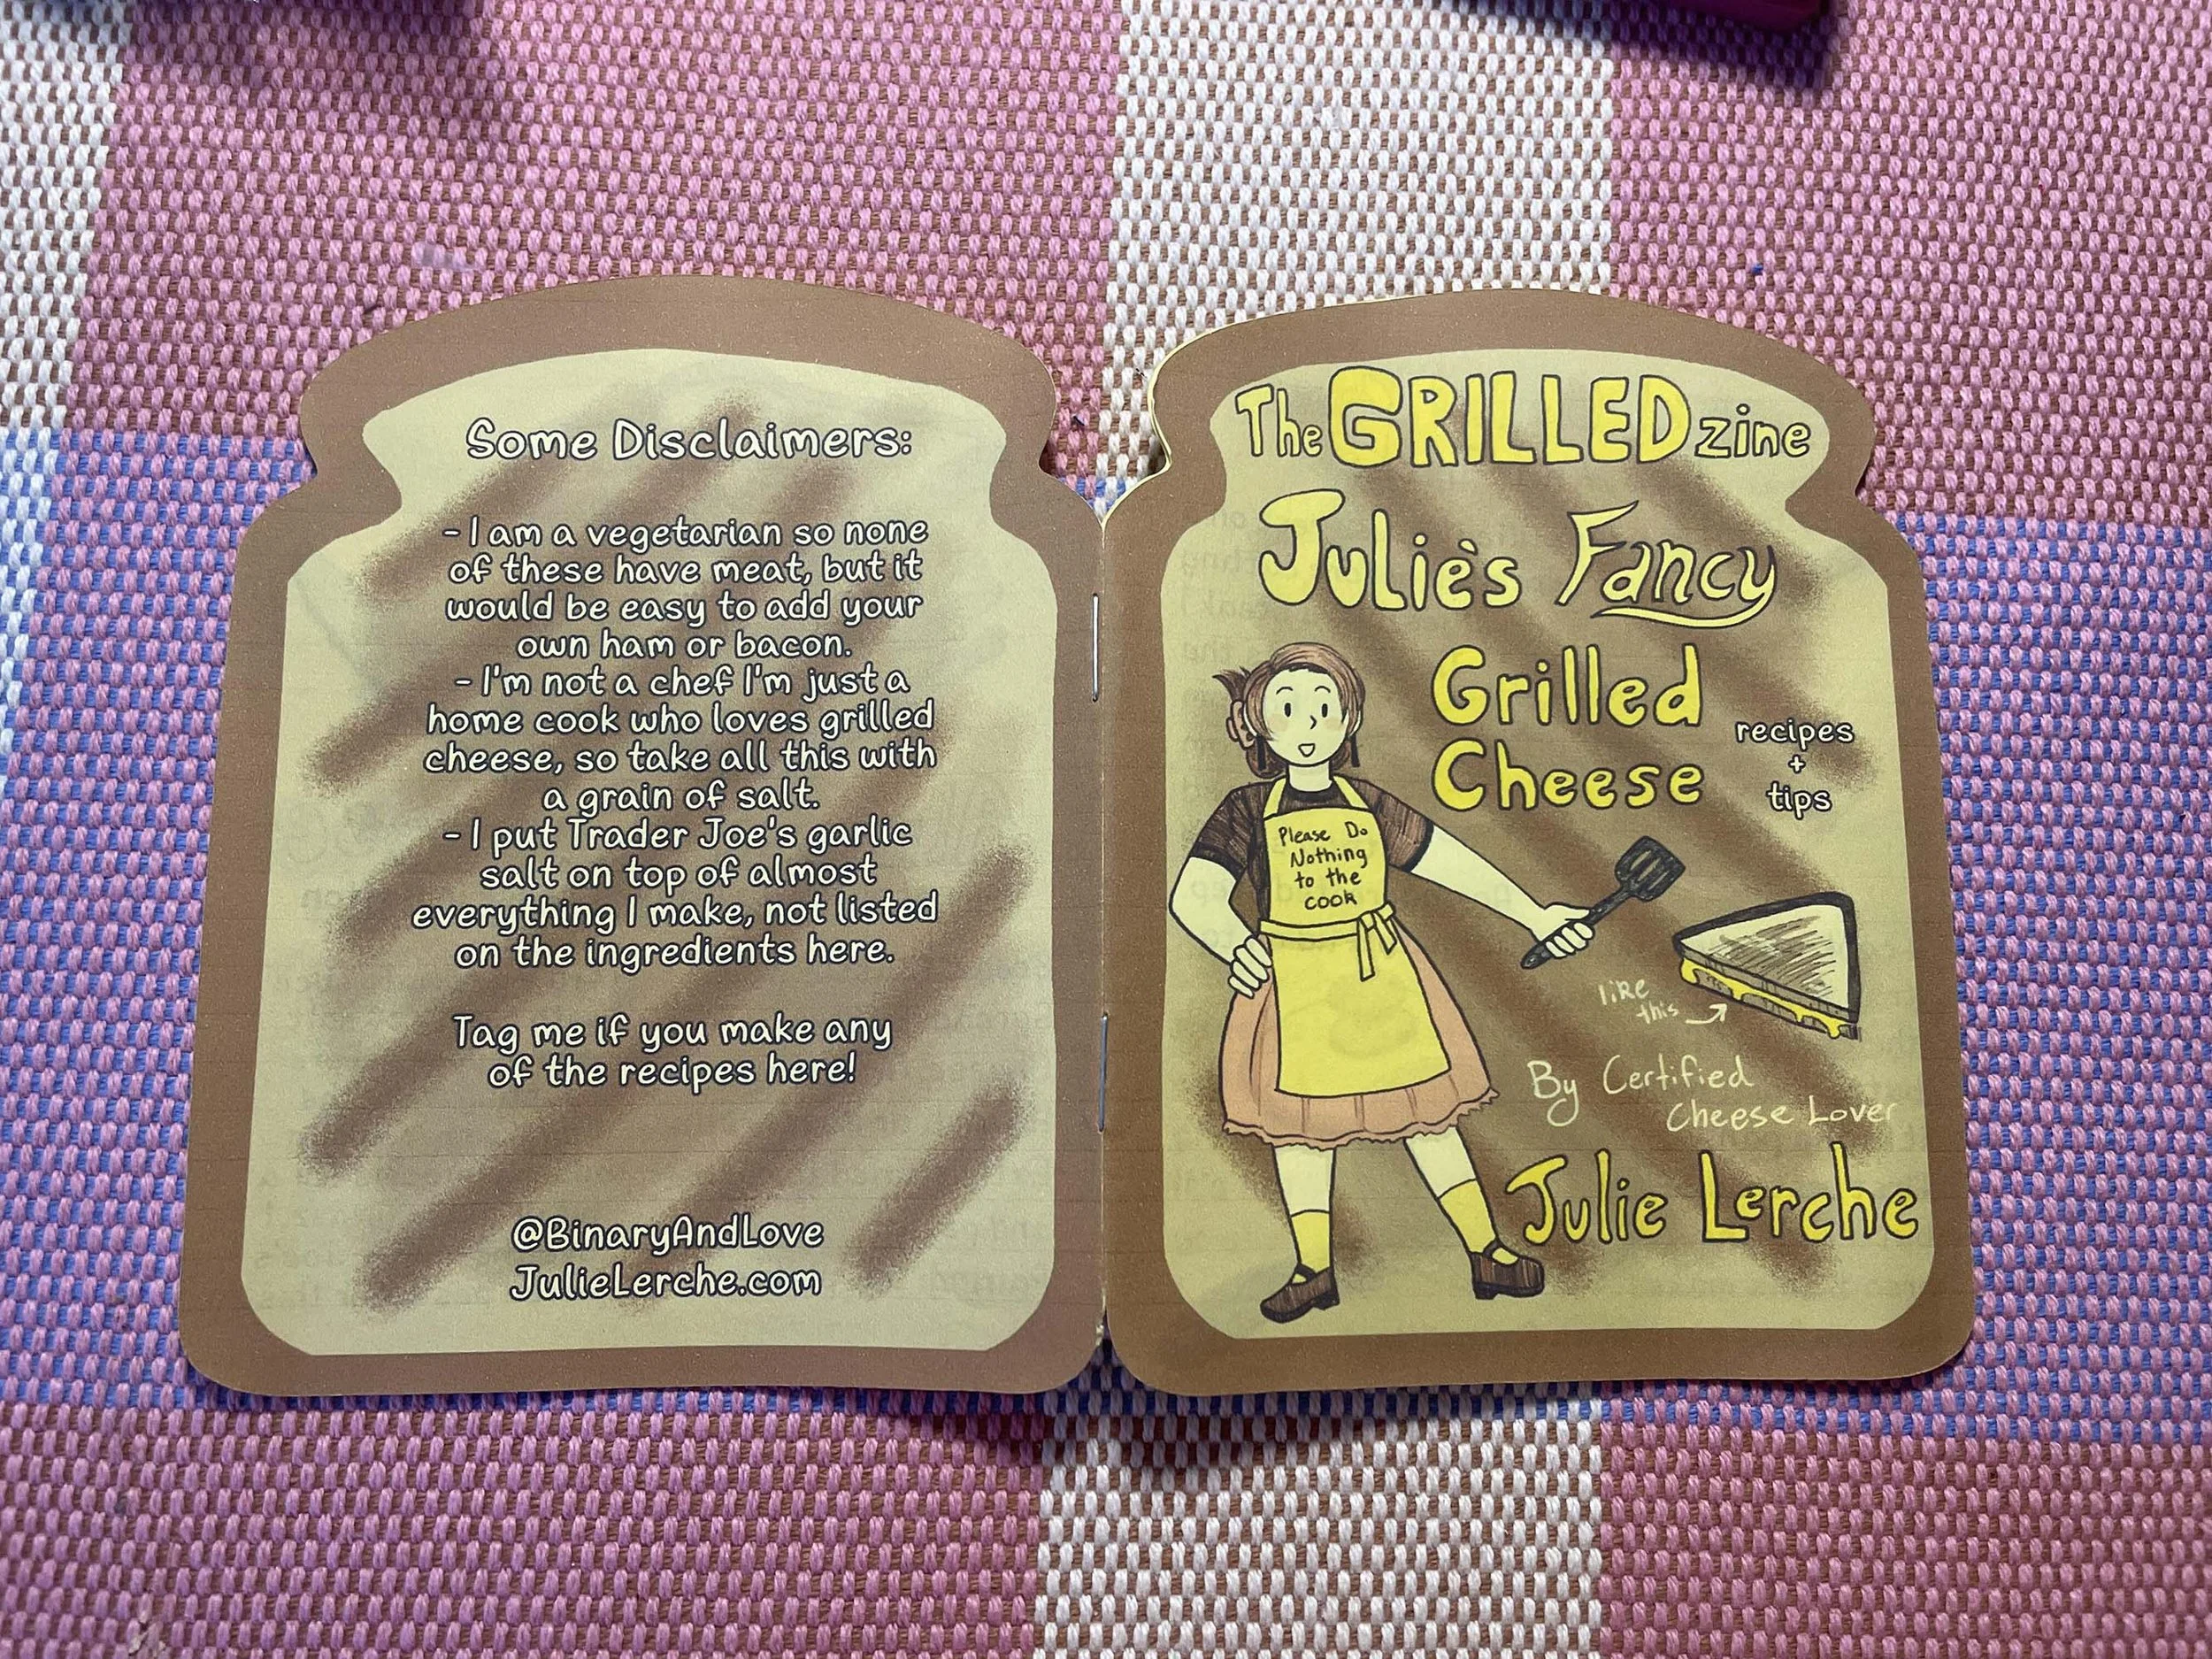 Some Disclaimers:
- I am a vegetarian so none
of these have meat, but it
would be easy to add your
own ham or bacon.
- I'm not a chef I'm just a
home cook who loves grilled
cheese, so take all this with
a grain of salt.
- I put Trader Joe's garlic
salt on top of almost
everything I make, not listed
on the ingredients here.
Tag me if you make any
of the recipes here!
@BinaryAndLove
JulieLerche.com
The GRILLED zine
Julie's Fancy
Grilled
Cheese
recipes
+
tips
Please Do
Nothing
to the
cook
like
this
By Certified
Cheese Lover
Julie Lerche